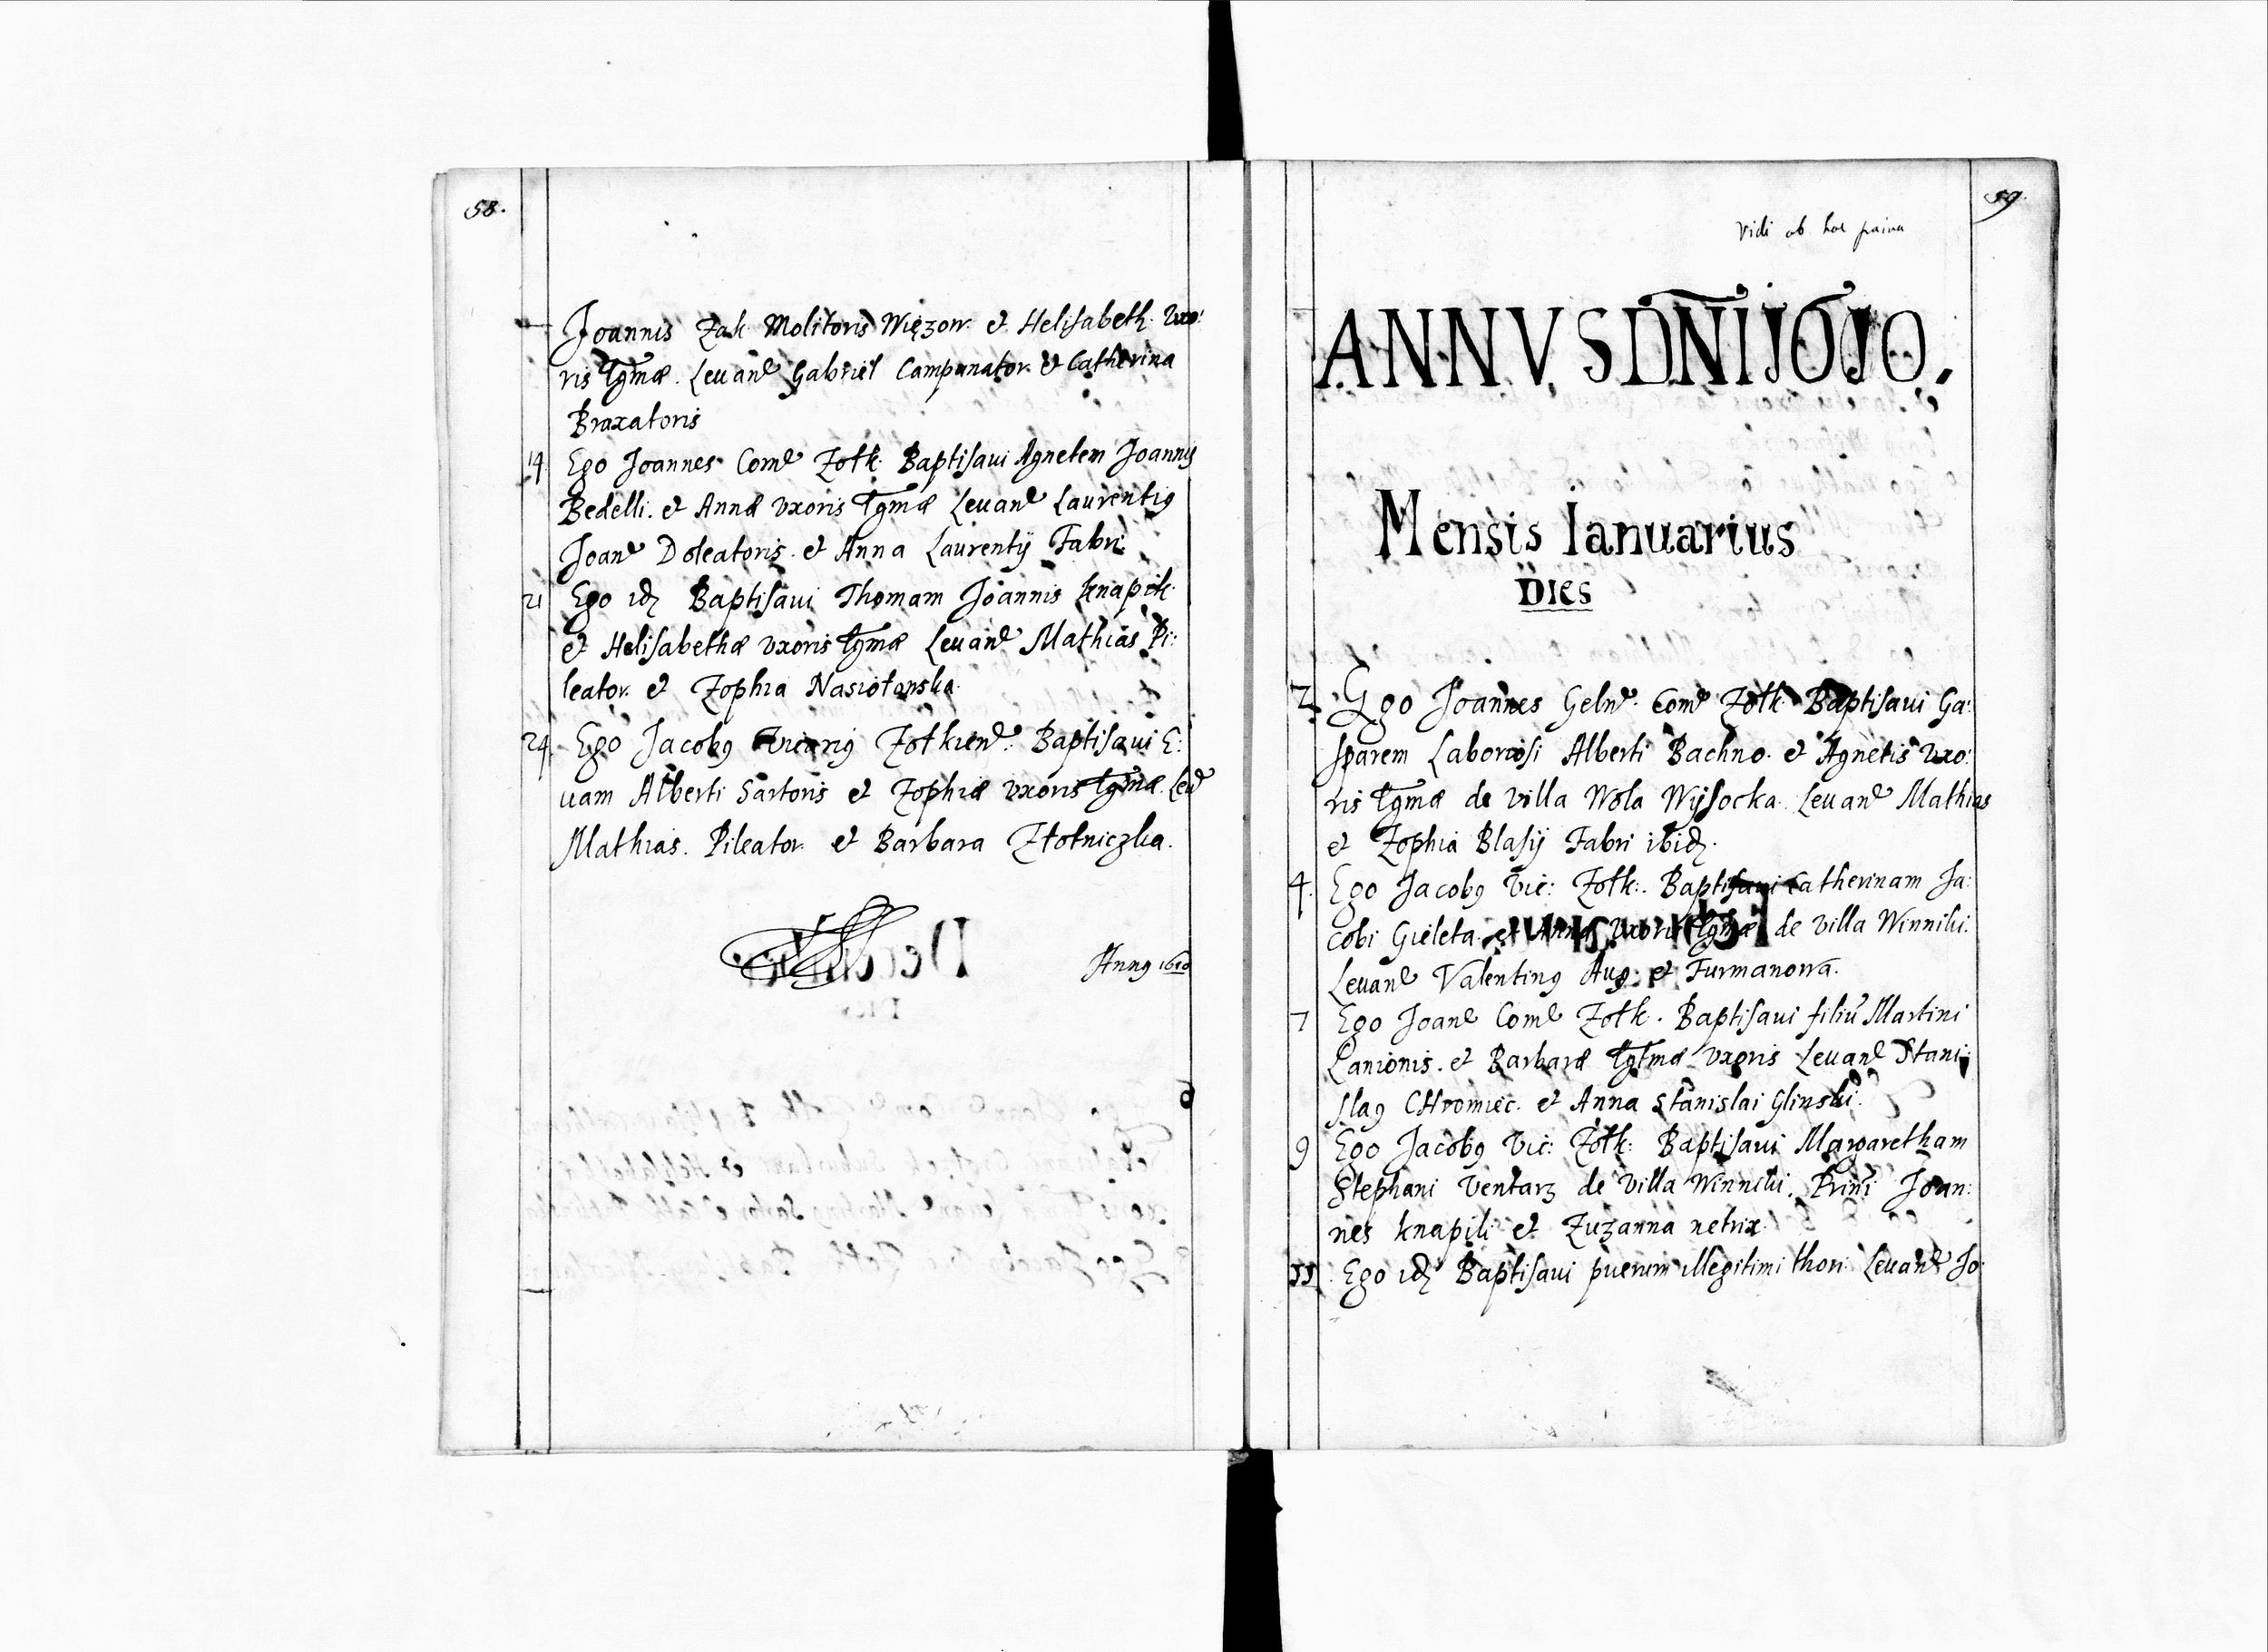 58.
Joannis Żak Molitoris Więzow. et Helisabeth. Uxo:
ris Lgmæ. Levane Gabriel Campanator. et Catherina
Braxatoris
14. Ego Joannes Come Żołk: Baptisavi Agnetem Joannis
Bedelli. et Annæ vxoris Lgmæ Levane Laurentig
Joane Doleatoris. et Anna Laurentij Fabri
21 Ego idz Baptisavi Thomam Joannis knapik.
et Helisabethæ vxoris Lgmæ Levane Mathias Pi:
leator. et Zophia Nasiołowska.
24. Ego Jacobg Vicarig Żołkiene: Baptisavi E:
uam Alberti Sartoris et Zophiæ vxoris Lgmæ. Leve
Mathias. Pileator. et Barbara Złotniczka.
Anng 1610
59.
Vidi ob hoc
ANNVS DNI 1010.
Mensis Ianuarius
DIES
2. Ego Joannes Gelne. Come Żołk: Baptisavi Ga:
sparem Laboriosi Alberti Bachno. et Agnetis vxo:
ris Lgmæ de villa Wola Wysocka. Levane Mathias
et Zophia Blasij Fabri ibidz.
4. Ego Jacobg Vic: Żołk:. Baptisavi Catherinam Ja:
cobi Gieleta. et Annæ vxoris Lgmæ de villa Winniki.
Levane Valenting Aug: et Furmanowa.
7 Ego Joane Come Żołk. Baptisavi filiu Martini
Lanionis. et Barbaræ Lgtmæ vxoris Levane Stani:
slag CHromiec. et Anna Stanislai Glinski.
9 Ego Jacobg Vic: Żołk: Baptisavi Margaretham
Stephani Ventarz de villa Winniki. Prini Joan:
nes knapik et Zuzanna netrix.
11. Ego idz Baptisavi puerum illegitimi thori. Levane Jo: